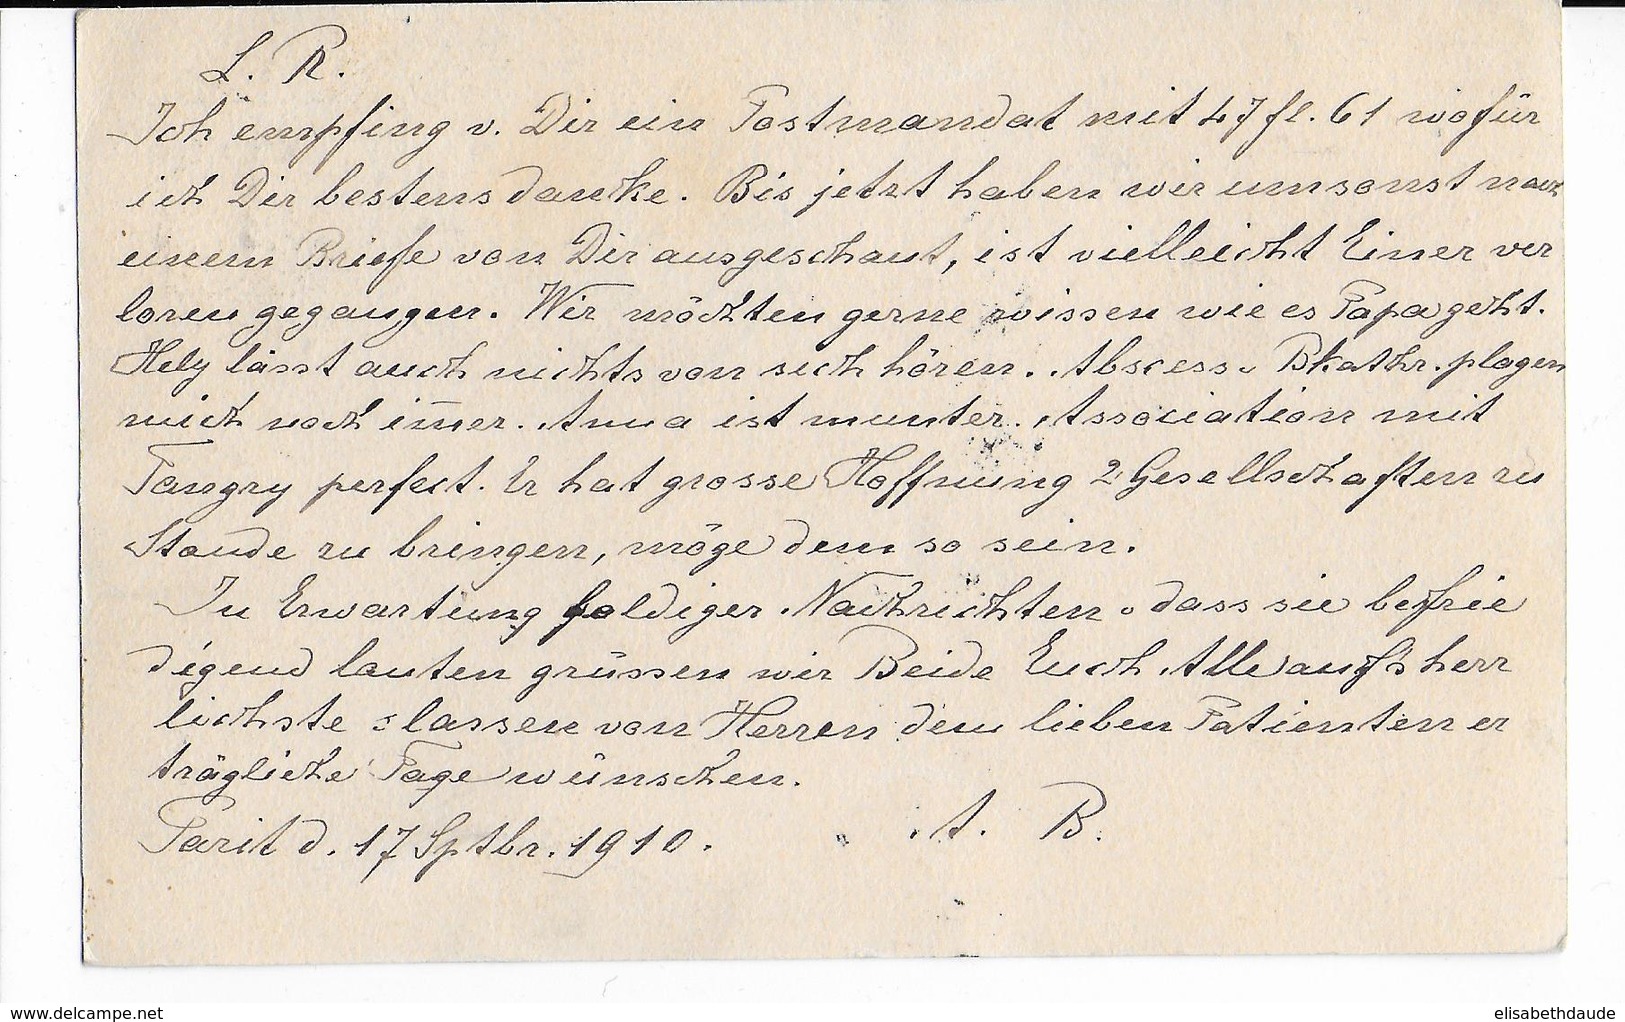 L. R.
Ich empfing v. Dir ein Postmandat mit 47 fl. 61 wofür
ich Dir bestens dancke. Bis jetzt haben wir umsonst nach
einem Briefe von Dir ausgeschaut, ist vielleicht Einer ver
loren gegangen. Wir möchten gerne wissen wie es Papa geht.
Hely lässt auch nichts von sich hören. Abscess u Bkathr. plagen
mich noch im̅er. Anna ist munter. Association mit
Tangry perfect. Er hat grosse Hoffnung 2 Gesellschaften zu
Stande zu bringen, möge dem so sein.
In Erwartung baldiger Nachrichten u dass sie befrie
digend lauten grüssen wir Beide Euch Alle auf's herr
lichste & lassen von Herzen dem lieben Patienten er
trägliche Tage wünschen.
Parit d. 17 Sptbr. 1910. A. B.
www.delcampe.net
elisabethdaude